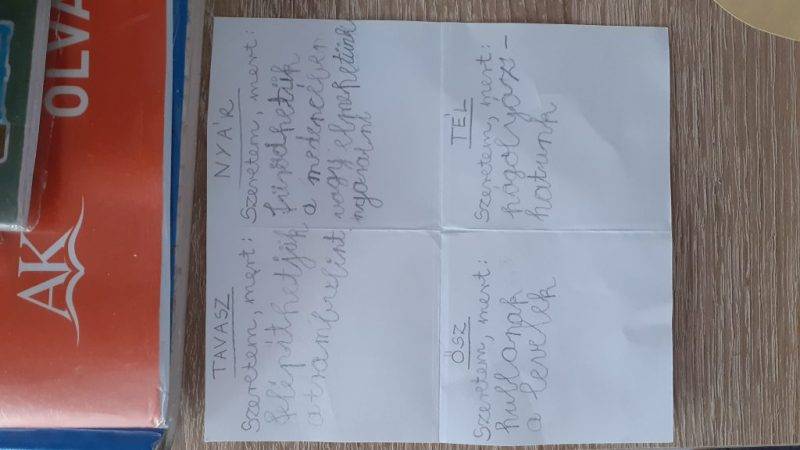 OLVA
AK
TAVASZ
Szeretem, mert:
felépíthetjük
a trambulint
NYÁR
Szeretem, mert:
fürödhetük
a medencében
vagy elmehetünk
nyaralni
ŐSZ
Szeretem, mert:
hullanak
a levelek
TÉL
Szeretem, mert:
hógolyózs-
hatunk